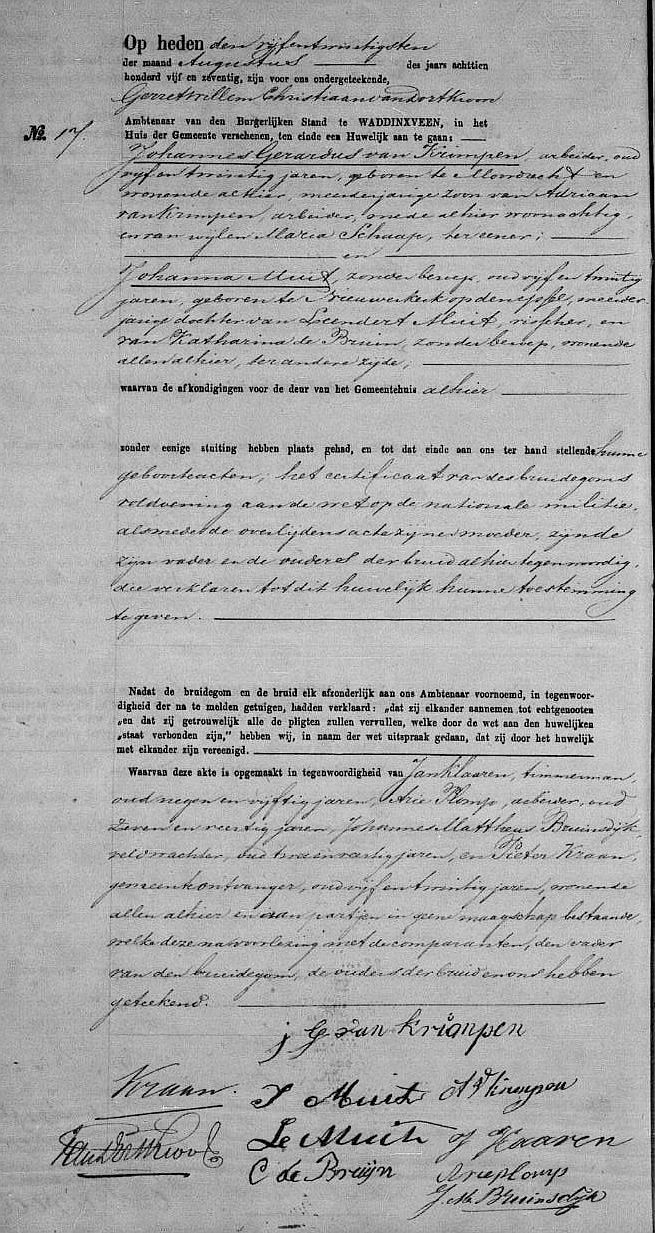 Op heden den vijfentwintigsten
der maand Augustus des jaars achttien
honderd vijf en zeventig, zijn voor ons ondergeteekende,
Gerret Willem Christiaan van Dort Kroon
Ambtenaar van den Burgerlijken Stand te WADDINXVEEN, in het
№. 17. Huis der Gemeente verschenen, ten einde een Huwelijk aan te gaan:
Johannes Gerardus van Krimpen, arbeider, oud
vijf en twintig jaren, geboren te Moordrecht en
wonende alhier, meerderjarige zoon van Adriaan
van Krimpen, arbeider, mede alhier woonachtig,
en van wijlen Maria Schaap, ter eener;
en
Johanna Muit, zonder beroep, oud vijf en twintig
jaren, geboren te Nieuwerkerk op den IJssel, meerder-
jarige dochter van Leendert Muit, visscher, en
van Katharina de Bruin, zonder beroep, wonende
allen alhier, ter andere zijde;
waarvan de afkondigingen voor de deur van het Gemeentehuis alhier
zonder eenige stuiting hebben plaats gehad, en tot dat einde aan ons ter hand stellende hunne
geboorteacten; het certificaat van des bruidegoms
voldoening aan de wet op de nationale militie,
alsmede de overlijdens acte zijner moeder, zijnde
zijn vader en de ouders der bruid alhier tegenwoordig,
die verklaren tot dit huwelijk hunne toestemming
te geven.
Nadat de bruidegom en de bruid elk afzonderlijk aan ons Ambtenaar voornoemd, in tegenwoor-
digheid der na te melden getuigen, hadden verklaard: „dat zij elkander aannemen tot echtgenooten
„en dat zij getrouwelijk alle de pligten zullen vervullen, welke door de wet aan den huwelijken
„staat verbonden zijn,” hebben wij, in naam der wet uitspraak gedaan, dat zij door het huwelijk
met elkander zijn vereenigd.
Waarvan deze akte is opgemaakt in tegenwoordigheid van Jan Klaaren, timmerman,
oud negen en vijftig jaren, Arie Plomp, arbeider, oud
zeven en veertig jaren, Johannes Mattheus Bruinsdijk,
veldwachter, oud twee en veertig jaren, en Pieter Kraan,
gemeenteontvanger, oud vijf en twintig jaren, wonende
allen alhier en aan partijen in geene maagschap bestaande,
welke deze na voorlezing met de comparanten, den vader
van den bruidegom, de ouders der bruid en ons hebben
geteekend.
j G van Krimpen
Kraan. J Muit A v Krimpen
L Muit J Klaaren
C de Bruijn Arie Plomp
J. M. Bruinsdijk